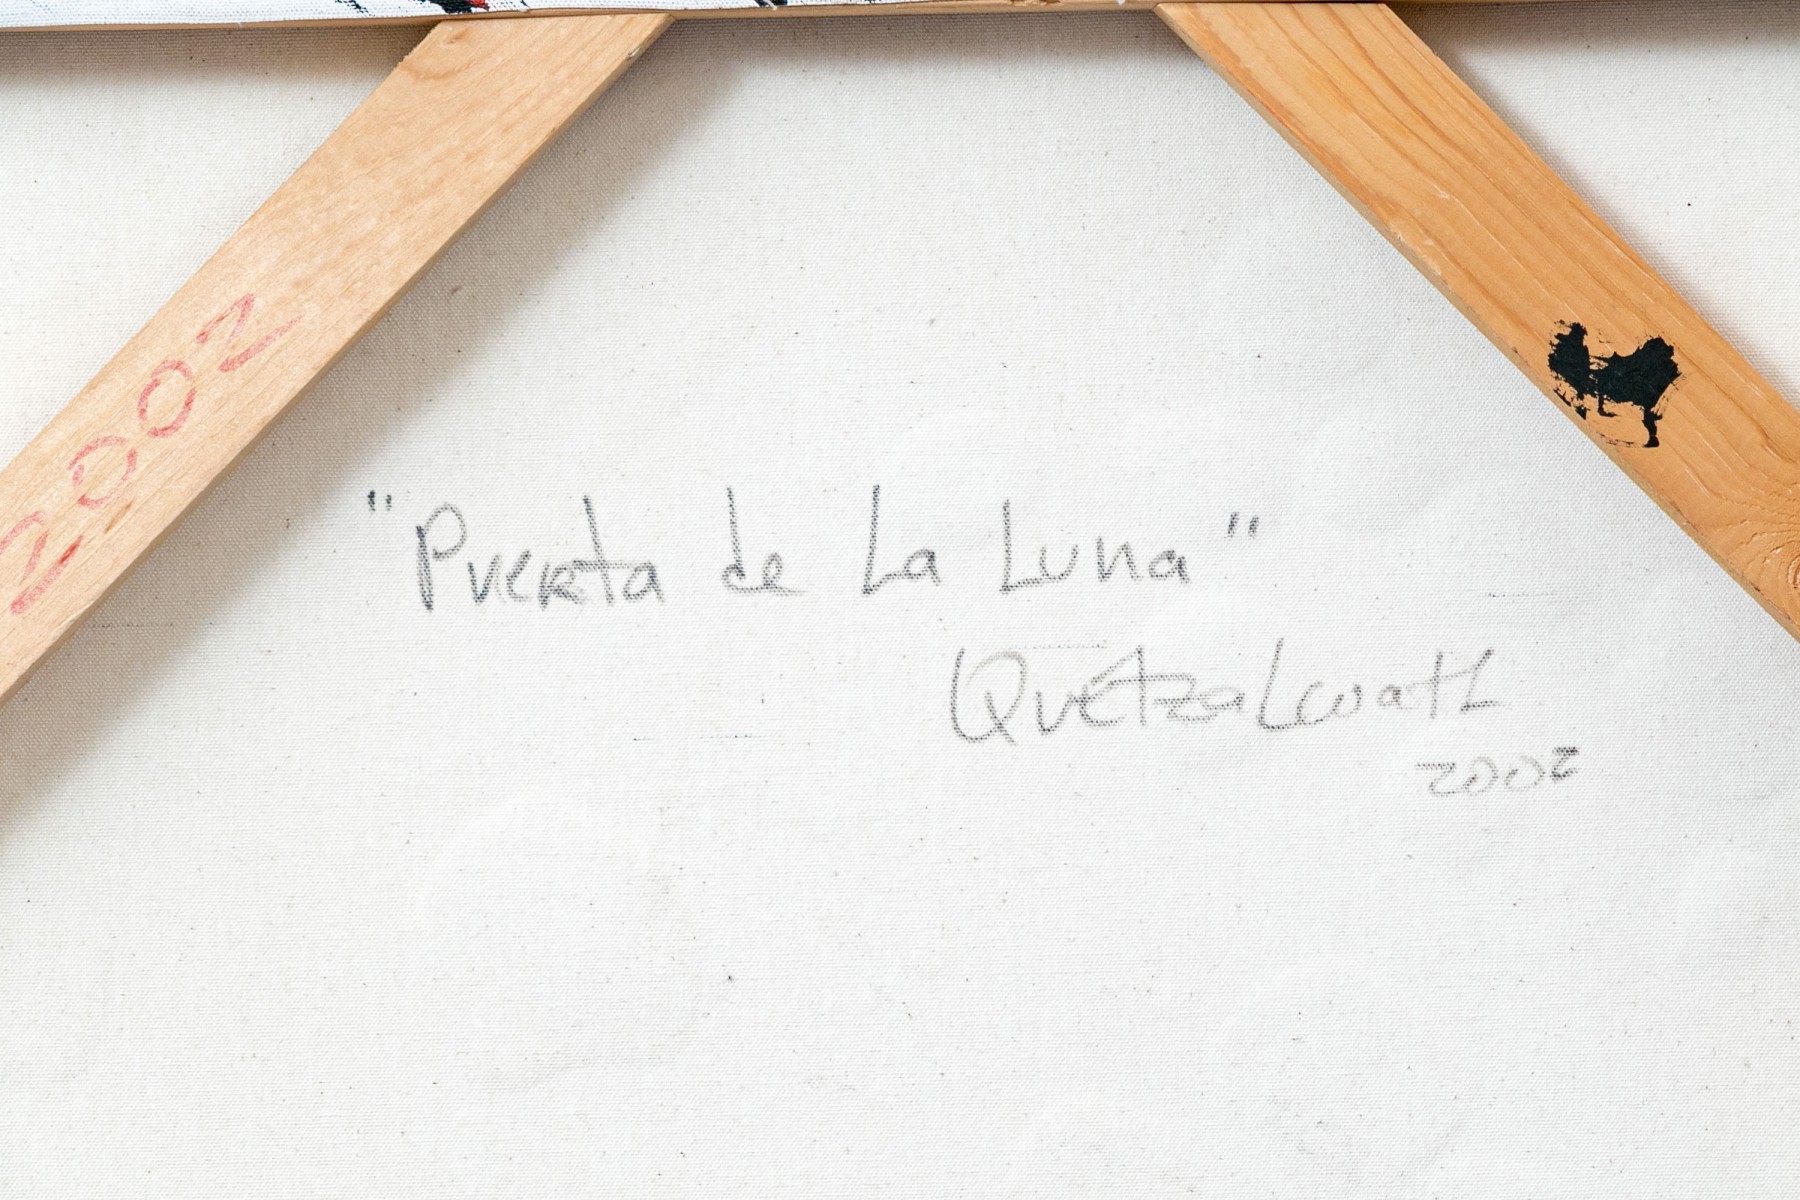 2002
"Puerta de La Luna"
Quetzalcoatl
2002